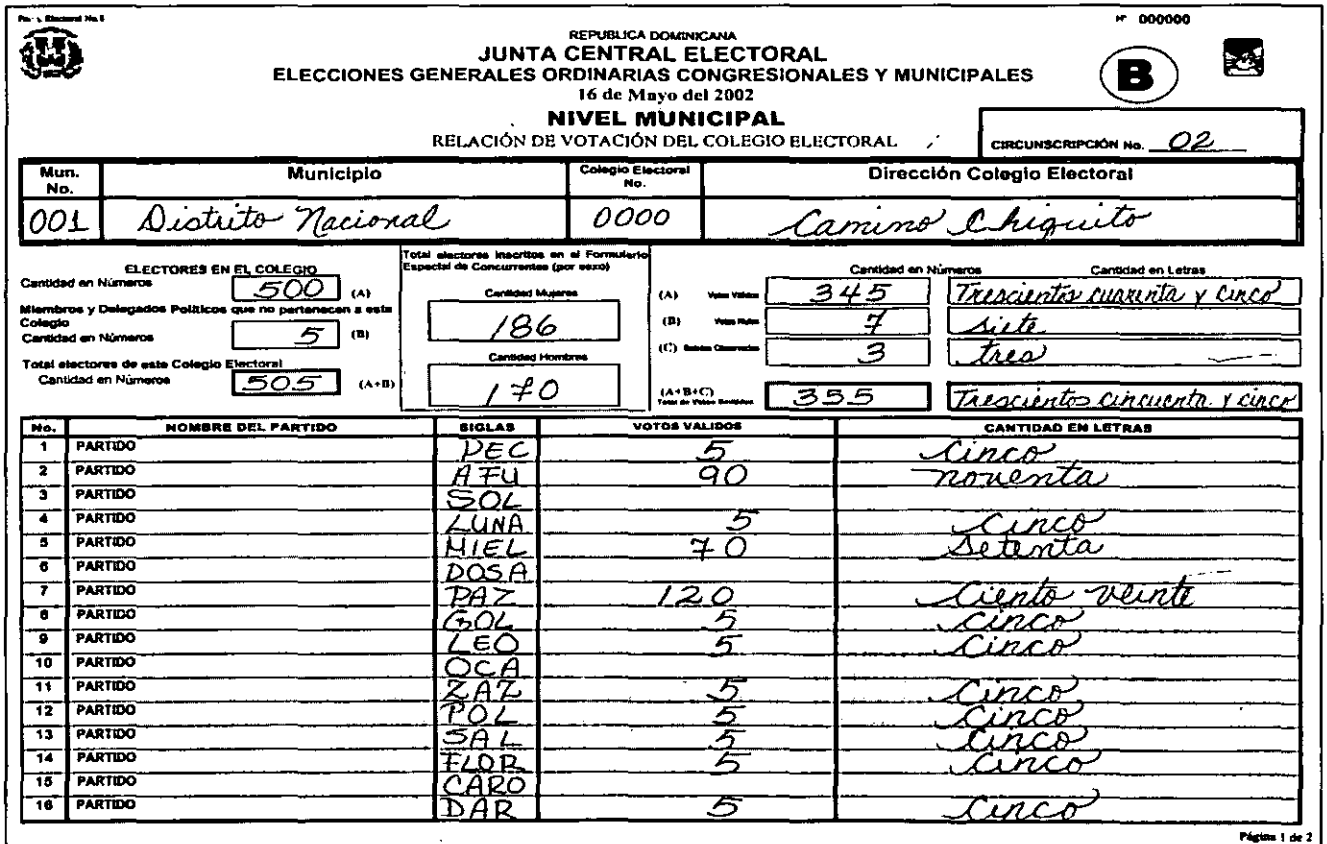 Nº 000000
REPUBLICA DOMINICANA
JUNTA CENTRAL ELECTORAL
ELECCIONES GENERALES ORDINARIAS CONGRESIONALES Y MUNICIPALES
16 de Mayo del 2002
B
NIVEL MUNICIPAL
RELACIÓN DE VOTACIÓN DEL COLEGIO ELECTORAL
CIRCUNSCRIPCIÓN No. 02
Mun. No. Municipio Colegio Electoral No. Dirección Colegio Electoral
001 Distrito Nacional 0000 Camino Chiquito
ELECTORES EN EL COLEGIO
Cantidad en Números 500 (A)
Miembros y Delegados Políticos que no pertenecen a este Colegio
Cantidad en Números 5 (B)
Total electores de este Colegio Electoral
Cantidad en Números 505 (A+B)
Total electores inscritos en el Formulario Especial de Concurrentes (por sexo)
Cantidad Mujeres
186
Cantidad Hombres
170
Cantidad en Números Cantidad en Letras
(A) Votos Válidos 345 Trescientos cuarenta y cinco
(B) Votos Nulos 7 siete
(C) 3 tres
(A+B+C) Total de Votos Emitidos 355 Trescientos cincuenta y cinco
No. NOMBRE DEL PARTIDO SIGLAS VOTOS VALIDOS CANTIDAD EN LETRAS
1 PARTIDO PEC 5 Cinco
2 PARTIDO AFU 90 noventa
3 PARTIDO SOL
4 PARTIDO LUNA 5 Cinco
5 PARTIDO MIEL 70 Setenta
6 PARTIDO DOSA
7 PARTIDO PAZ 120 Ciento veinte
8 PARTIDO GOL 5 Cinco
9 PARTIDO LEO 5 Cinco
10 PARTIDO OCA
11 PARTIDO ZAZ 5 Cinco
12 PARTIDO POL 5 Cinco
13 PARTIDO SAL 5 Cinco
14 PARTIDO FLOR 5 Cinco
15 PARTIDO CARO
16 PARTIDO DAR 5 Cinco
Página 1 de 2